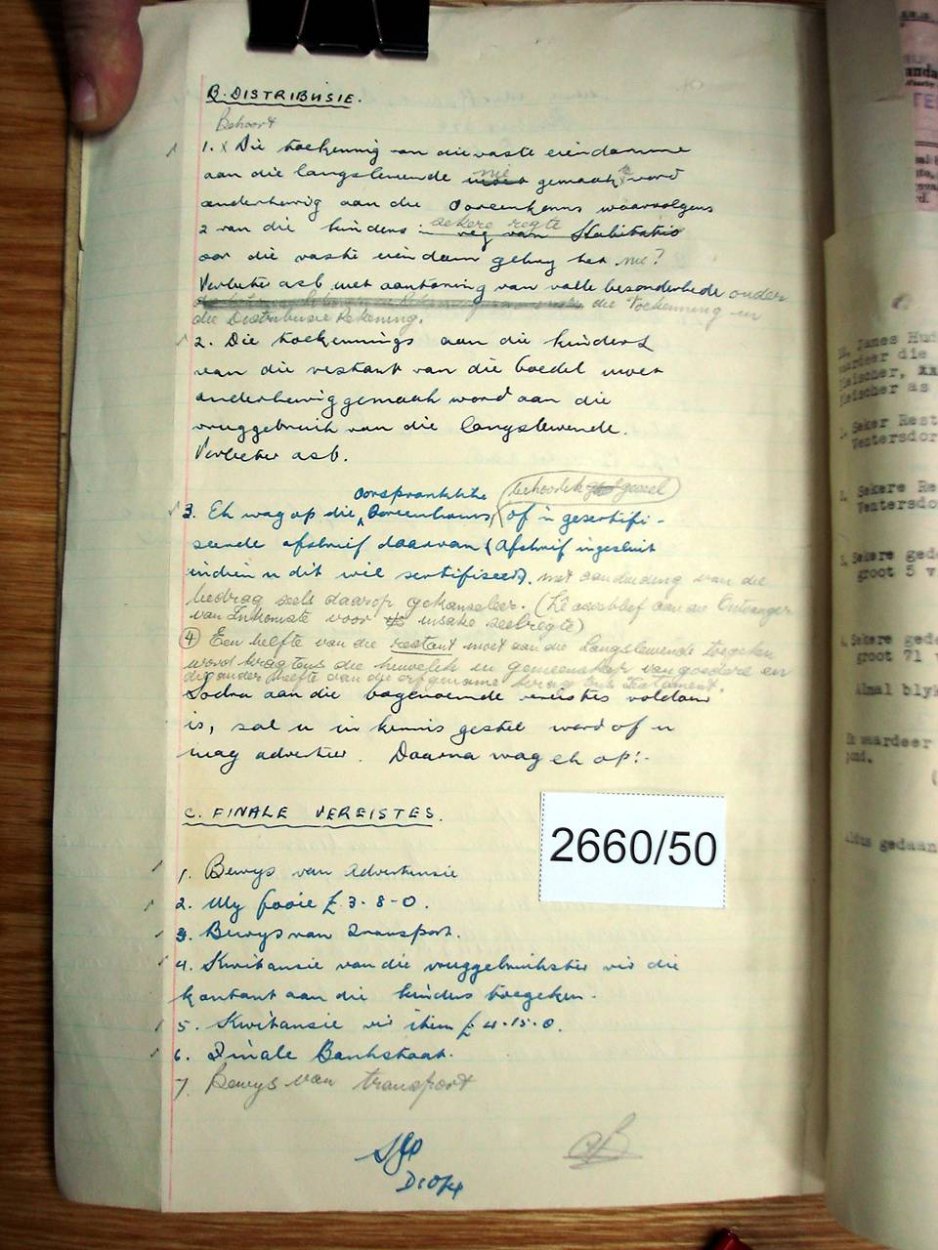 B. DISTRIBUSIE.
Behoort
1. x Die toekenning van die vaste eiendomme
aan die langslewende moet nie gemaak te word
onderhewig aan die ooreenkoms waarvolgens
2 van die kinders sekere regte reg van Habitatio
oor die vaste eiendom gehuy het nie?
Verbeter asb met aantoning van volle besonderhede onder
die Toekenning in
die Distribusie Rekening.
2. Die toekennings aan die kinders
van die restant van die boedel moet
onderhewig gemaak word aan die
vruggebruik van die langslewende.
Verbeter asb.
oorspronklike (behoorlik geseel)
3. Ek wag op die ooreenkoms, of 'n gesertifi-
seerde afskrif daarvan (Afskrif ingesluit
indien u dit wil sertifiseer). met aanduiding van die
bedrag seels daarop gekanseleer. (Lê asseblief aan die Ontvanger
van Inkomste voor insake seelregte)
4 Een helfte van die restant moet aan die langslewende toegeken
word kragtens die huwelik in gemeenskap van goedere en
die ander helfte aan die erfgename krag. Testament.
Sodra aan die bogenoemde vereistes voldoen
is, sal u in kennis gestel word of u
mag adverteer. Daarna wag ek op:-
C. FINALE VEREISTES.
1. Bewys van Advertensie
2. My fooie £3-8-0.
3. Bewys van Transport.
4. Kwitansie van die vruggebruikster vir die
kontant aan die kinders toegeken.
5. Kwitansie vir item £4-15-0.
6. Finale Bankstaat.
7. Bewys van transport
2660/50
James Hu
waardeer die
Seker Rest
Ventersdor
Sekere Re
Ventersdo
Sekere ged
groot 5 v
Sekere gede
groot 71 v
Almal blyk
Ek waardeer
pond.
Aldus gedaan